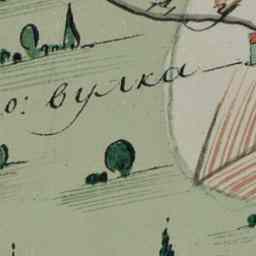 о: вулка